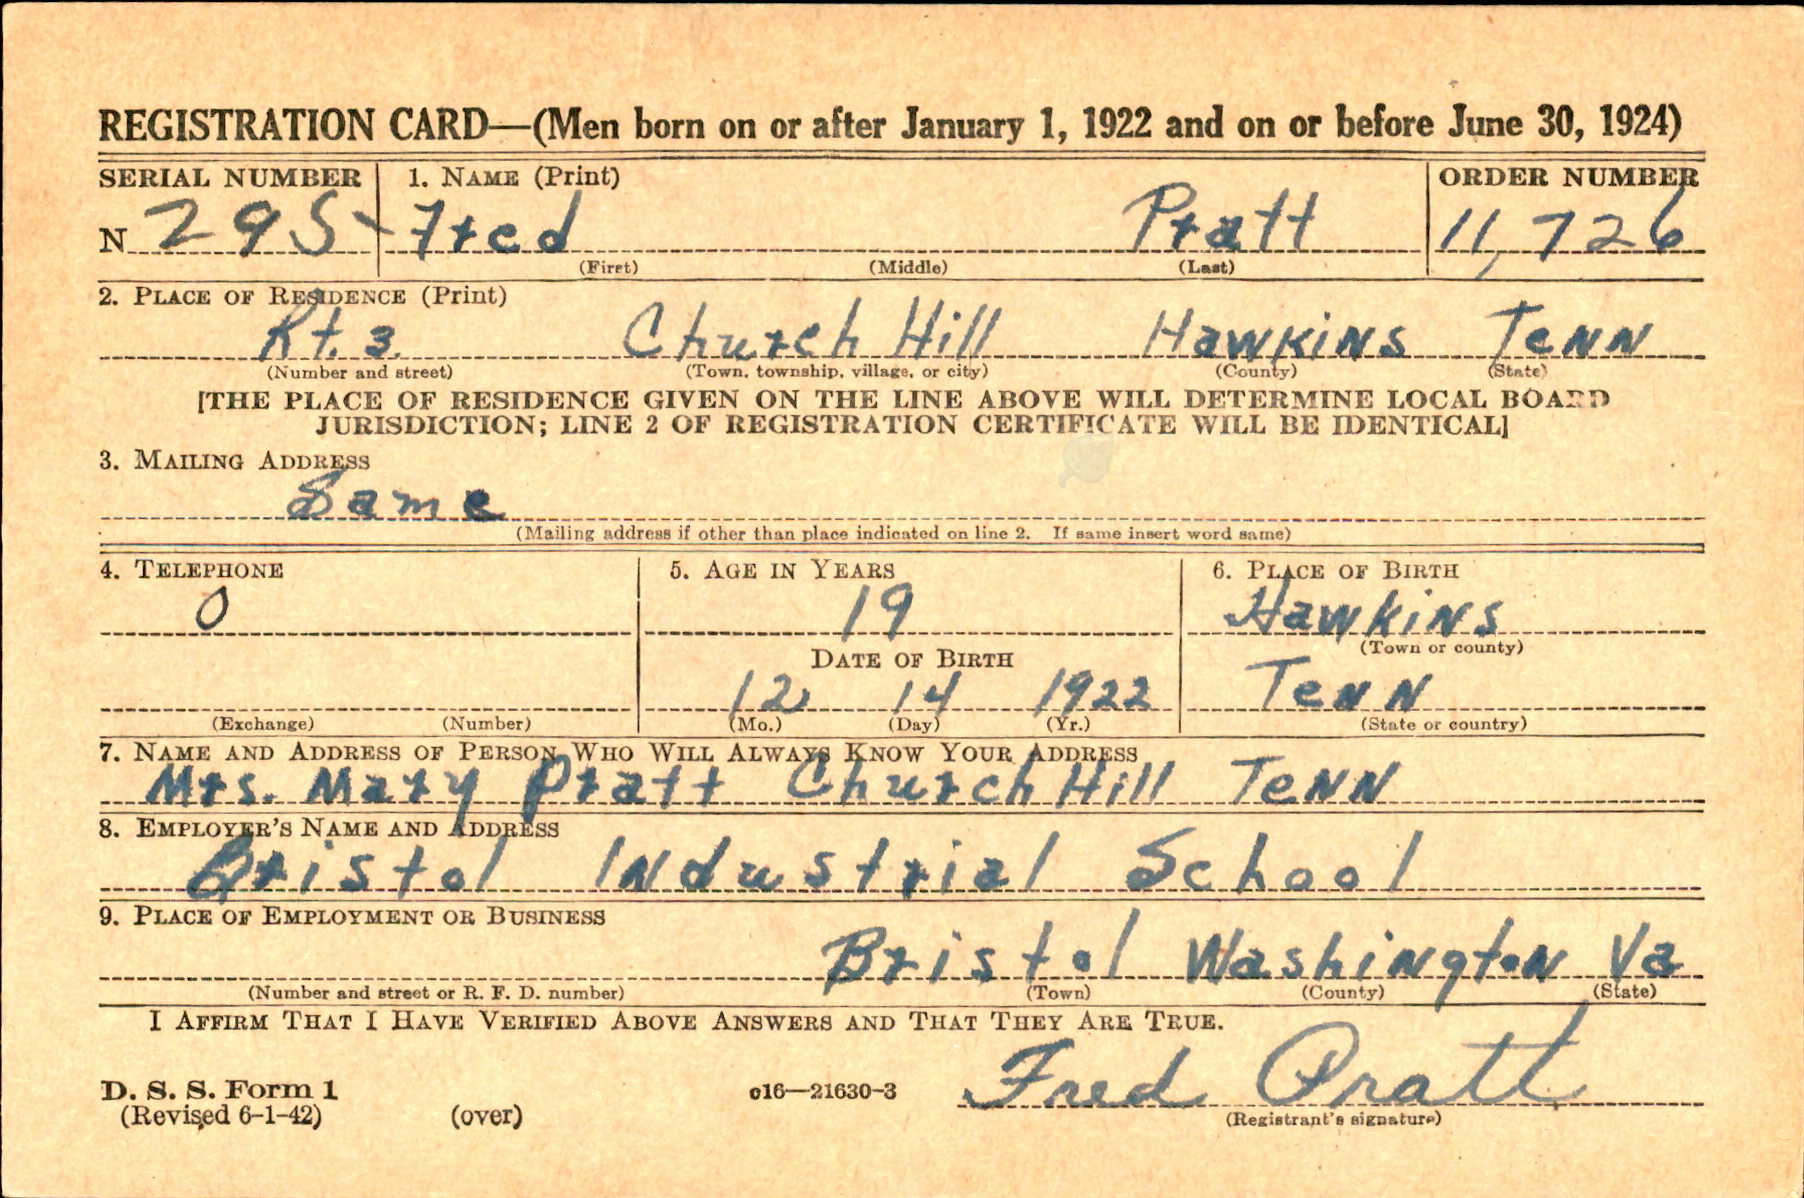 REGISTRATION CARD—(Men born on or after January 1, 1922 and on or before June 30, 1924)
SERIAL NUMBER 1. NAME (Print) ORDER NUMBER
N 295 Fred Pratt 11,726
(First) (Middle) (Last)
2. PLACE OF RESIDENCE (Print)
Rt. 3. Church Hill Hawkins Tenn
(Number and street) (Town, township, village, or city) (County) (State)
[THE PLACE OF RESIDENCE GIVEN ON THE LINE ABOVE WILL DETERMINE LOCAL BOARD
JURISDICTION; LINE 2 OF REGISTRATION CERTIFICATE WILL BE IDENTICAL]
3. MAILING ADDRESS
Same
(Mailing address if other than place indicated on line 2. If same insert word same)
4. TELEPHONE 5. AGE IN YEARS 6. PLACE OF BIRTH
0 19 Hawkins
(Town or county)
DATE OF BIRTH
12 14 1922 Tenn
(Exchange) (Number) (Mo.) (Day) (Yr.) (State or country)
7. NAME AND ADDRESS OF PERSON WHO WILL ALWAYS KNOW YOUR ADDRESS
Mrs. Mary Pratt Church Hill Tenn
8. EMPLOYER'S NAME AND ADDRESS
Bristol Industrial School
9. PLACE OF EMPLOYMENT OR BUSINESS
Bristol Washington Va
(Number and street or R. F. D. number) (Town) (County) (State)
I AFFIRM THAT I HAVE VERIFIED ABOVE ANSWERS AND THAT THEY ARE TRUE.
Fred Pratt
D. S. S. Form 1 c16—21630-3
(Revised 6-1-42) (over) (Registrant's signature)